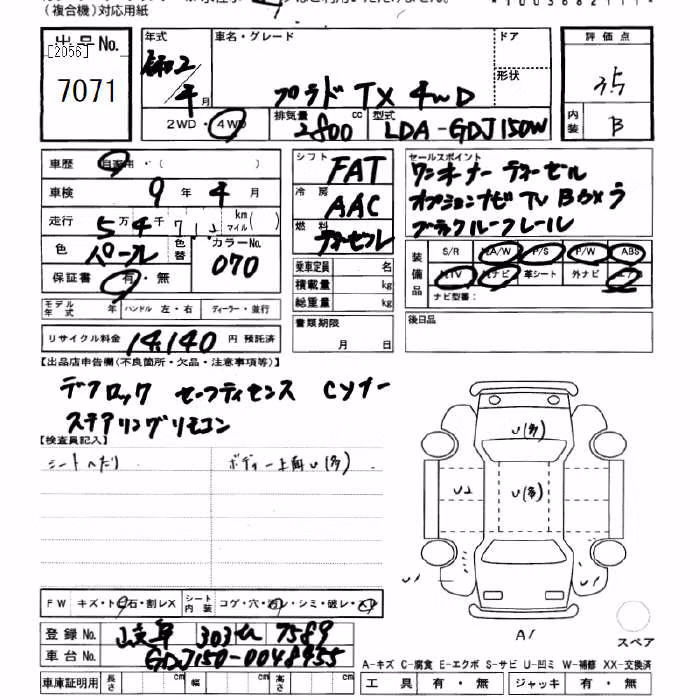 (複合機)対応用紙
出品No.
[2056]
7071
年式
令和2/4月
車名・グレード
プラド TX 4WD
ドア
形状
2WD・4WD
排気量 2800 cc
型式 LDA-GDJ150W
評価点
3.5
内装
B
車歴 自家用・( )
車検 9年4月
走行 5万4千 km マイル( )
色 パール 色替 カラーNo. 070
保証書 有・無
モデル年式 年 ハンドル 左・右 ディーラー・並行
リサイクル料金 14,140 円 預託済
シフト FAT
冷房 AAC
燃料 ディーゼル
乗車定員 名
積載量 kg
総重量 kg
書類期限
月 日
セールスポイント
ワンオーナー ディーゼル
オプションナビ TV Bカメラ
ブラックルーフレール
装備品
S/R A/W P/S P/W ABS
TV ナビ 革シート 外ナビ エアB
ナビ型番:
後日品
【出品店申告欄(不良箇所・欠品・注意事項等)】
デフロック セーフティセンス Cソナー
ステアリングリモコン
【検査員記入】
シートへたり
ボディー上面U(多)
U(多)
U2
U(多)
U1
U1
A1
スペア
FW キズ・ト石・割レX
シート内装 コゲ・穴・汚レ・シミ・破レ・スレ
登録No. 岐阜 303せ 7589
車台No. GDJ150-0048955
車庫証明用 長さ cm 幅 cm 高さ cm
A-キズ C-腐食 E-エクボ S-サビ U-凹ミ W-補修 XX-交換済
工具 有・無 ジャッキ 有・無